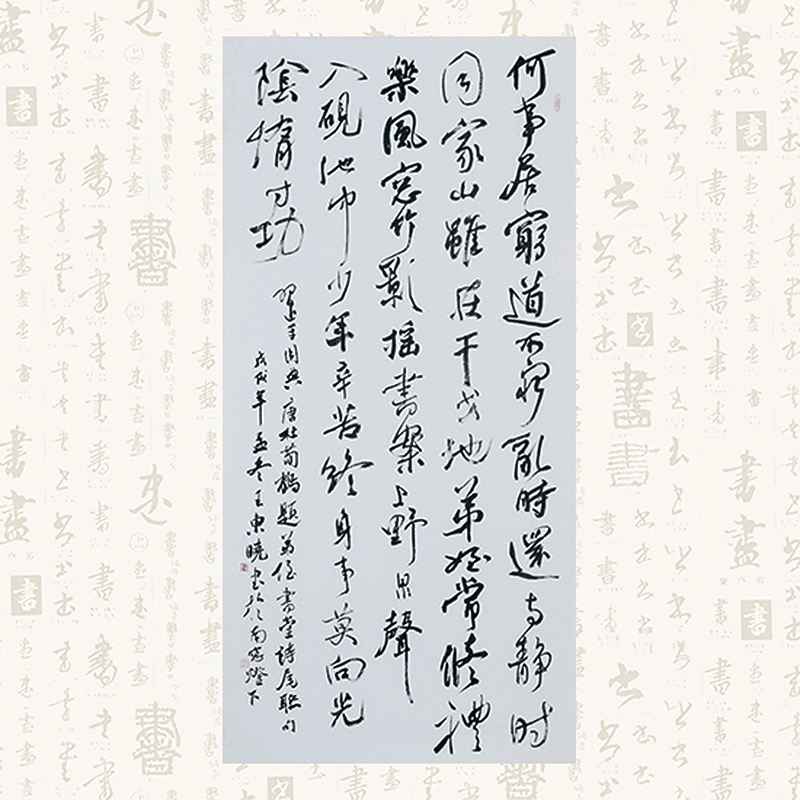 何事居窮道不窮亂時還与静时
同家山雖在干戈地弟姪常修禮
樂風窓竹影摇書案上野泉聲
入硯池中少年辛苦終身事莫向光
陰惰寸功
習近平用典唐杜荀鶴題弟侄書堂詩尾聯句
戊戌年孟冬王東曉书於南窓燈下